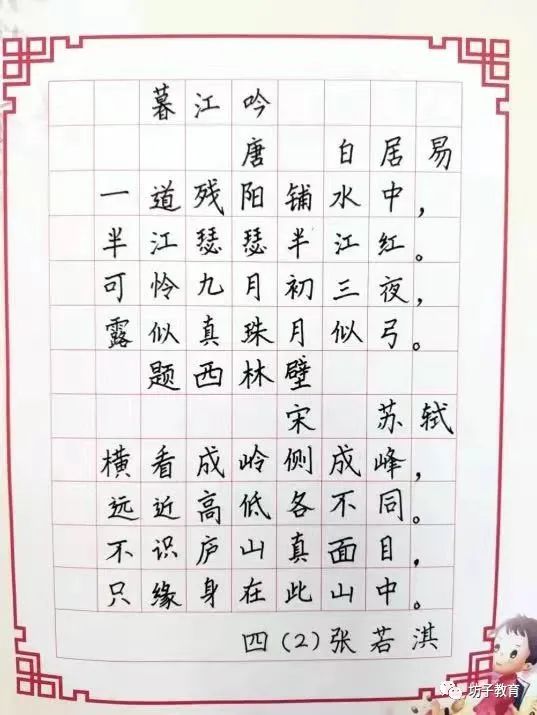 暮江吟
唐 白居易
一道残阳铺水中，
半江瑟瑟半江红。
可怜九月初三夜，
露似真珠月似弓。
题西林壁
宋 苏轼
横看成岭侧成峰，
远近高低各不同。
不识庐山真面目，
只缘身在此山中。
四(2)张若淇
坊子教育